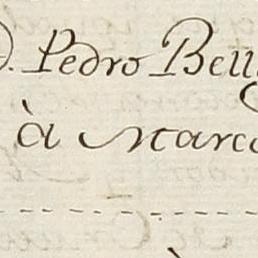 D. Pedro Bell
à Marc